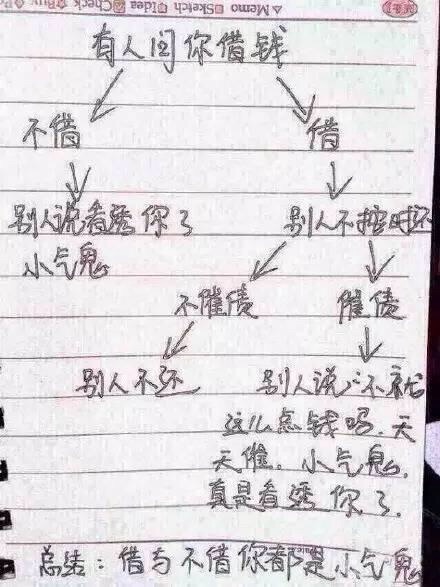 △ Memo □Sketch □Idea □Check ☆Buy
有人问你借钱
不借
借
别人说看透你了
小气鬼
别人不按时还
不催债
催债
别人不还
别人说:不就
这么点钱吗.天
天催.小气鬼.
真是看透你了.
总结:借与不借你都是小气鬼